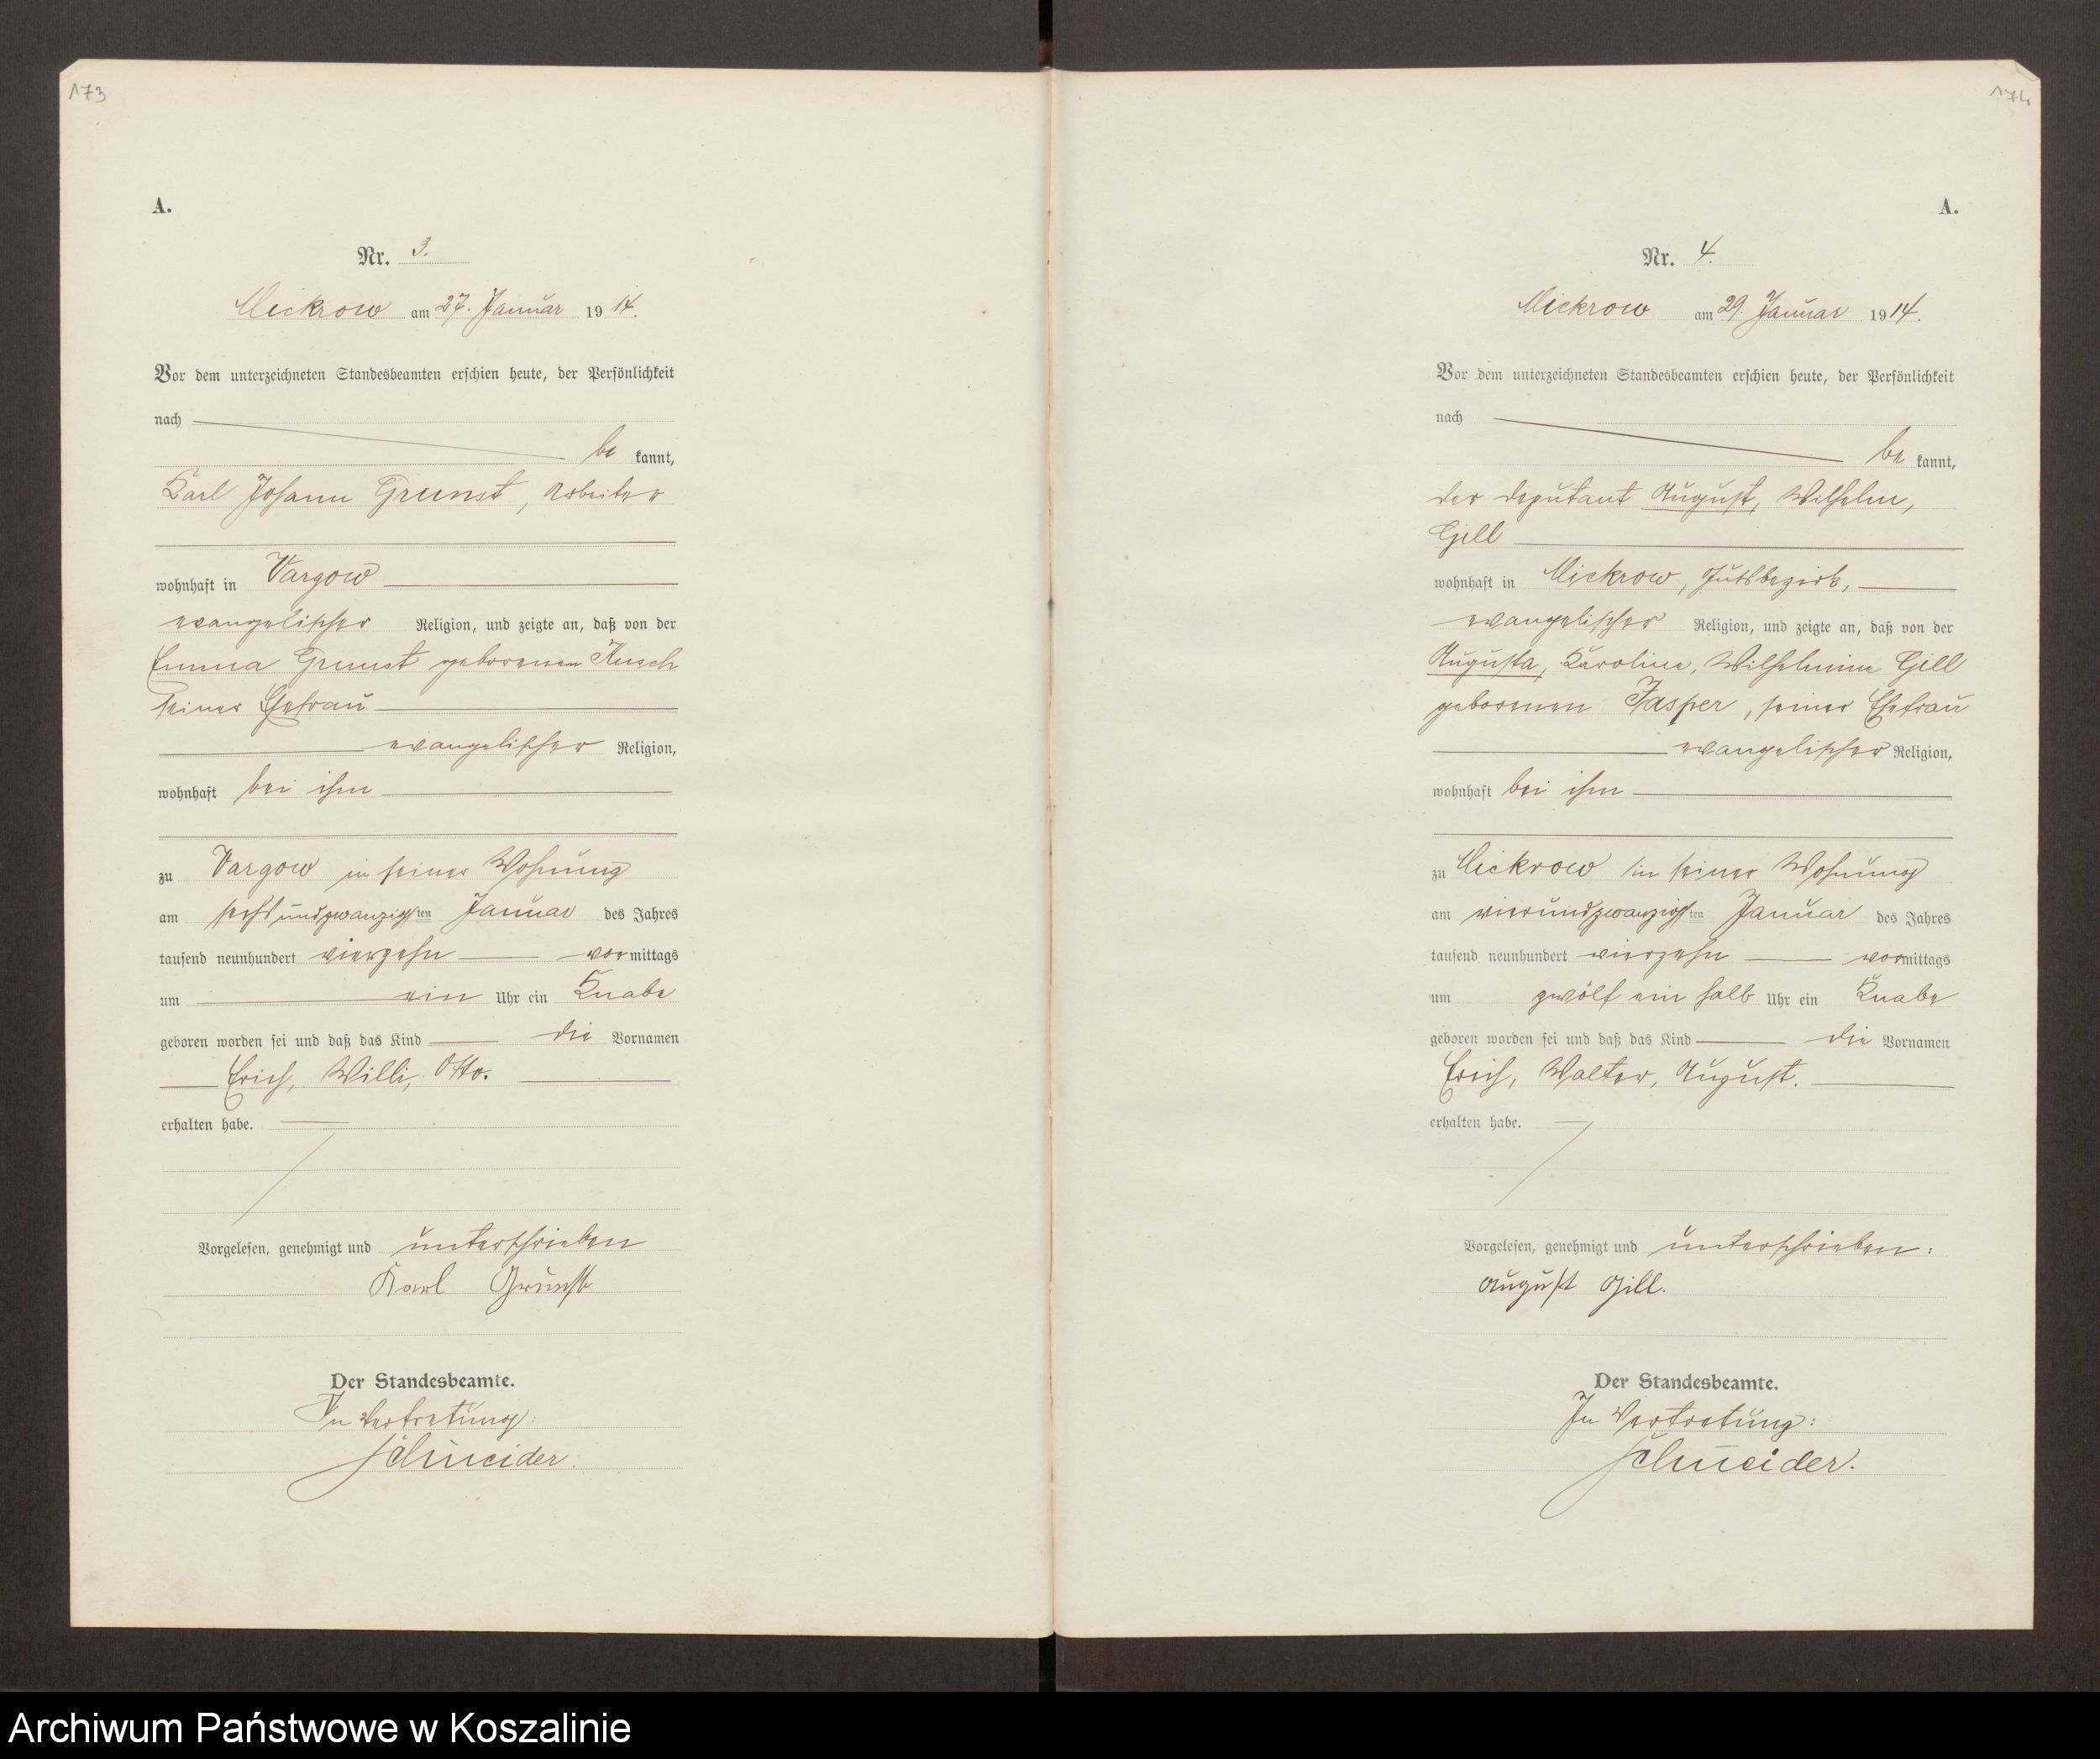 173
A.
Nr. 3.
Mickrow am 27. Januar 1914.
Vor dem unterzeichneten Standesbeamten erschien heute, der Persönlichkeit
nach
be kannt,
Karl Johann Grunst, Arbeiter
wohnhaft in Vargow
evangelischer Religion, und zeigte an, daß von der
Emma Grunst geborenen Kusch
seiner Ehefrau
evangelischer Religion,
wohnhaft bei ihm
zu Vargow in seiner Wohnung
am sechsundzwanzigsten Januar des Jahres
tausend neunhundert vierzehn vormittags
um ein Uhr ein Knabe
geboren worden sei und daß das Kind die Vornamen
Erich, Willi, Otto.
erhalten habe.
Vorgelesen, genehmigt und unterschrieben
Karl Grunst
Der Standesbeamte.
In Vertretung:
Schneider.
174
A.
Nr. 4.
Mickrow am 29. Januar 1914.
Vor dem unterzeichneten Standesbeamten erschien heute, der Persönlichkeit
nach
be kannt,
der Deputant August, Wilhelm,
Gill
wohnhaft in Mickrow, Gutsbezirk,
evangelischer Religion, und zeigte an, daß von der
Augusta, Karoline, Wilhelmine Gill
geborenen Jasper, seiner Ehefrau
evangelischer Religion,
wohnhaft bei ihm
zu Mickrow in seiner Wohnung
am vierundzwanzigsten Januar des Jahres
tausend neunhundert vierzehn vormittags
um zwölf ein halb Uhr ein Knabe
geboren worden sei und daß das Kind die Vornamen
Erich, Walter, August.
erhalten habe.
Vorgelesen, genehmigt und unterschrieben:
August Gill.
Der Standesbeamte.
In Vertretung:
Schneider.
Archiwum Państwowe w Koszalinie